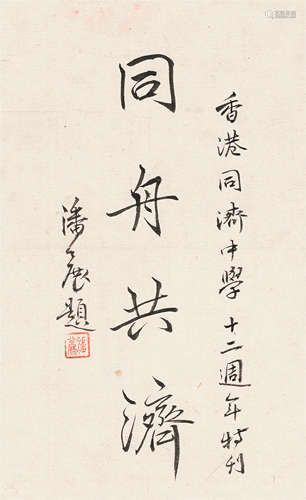 香港同濟中學十二週年特刊
同舟共濟
潘𠄎題